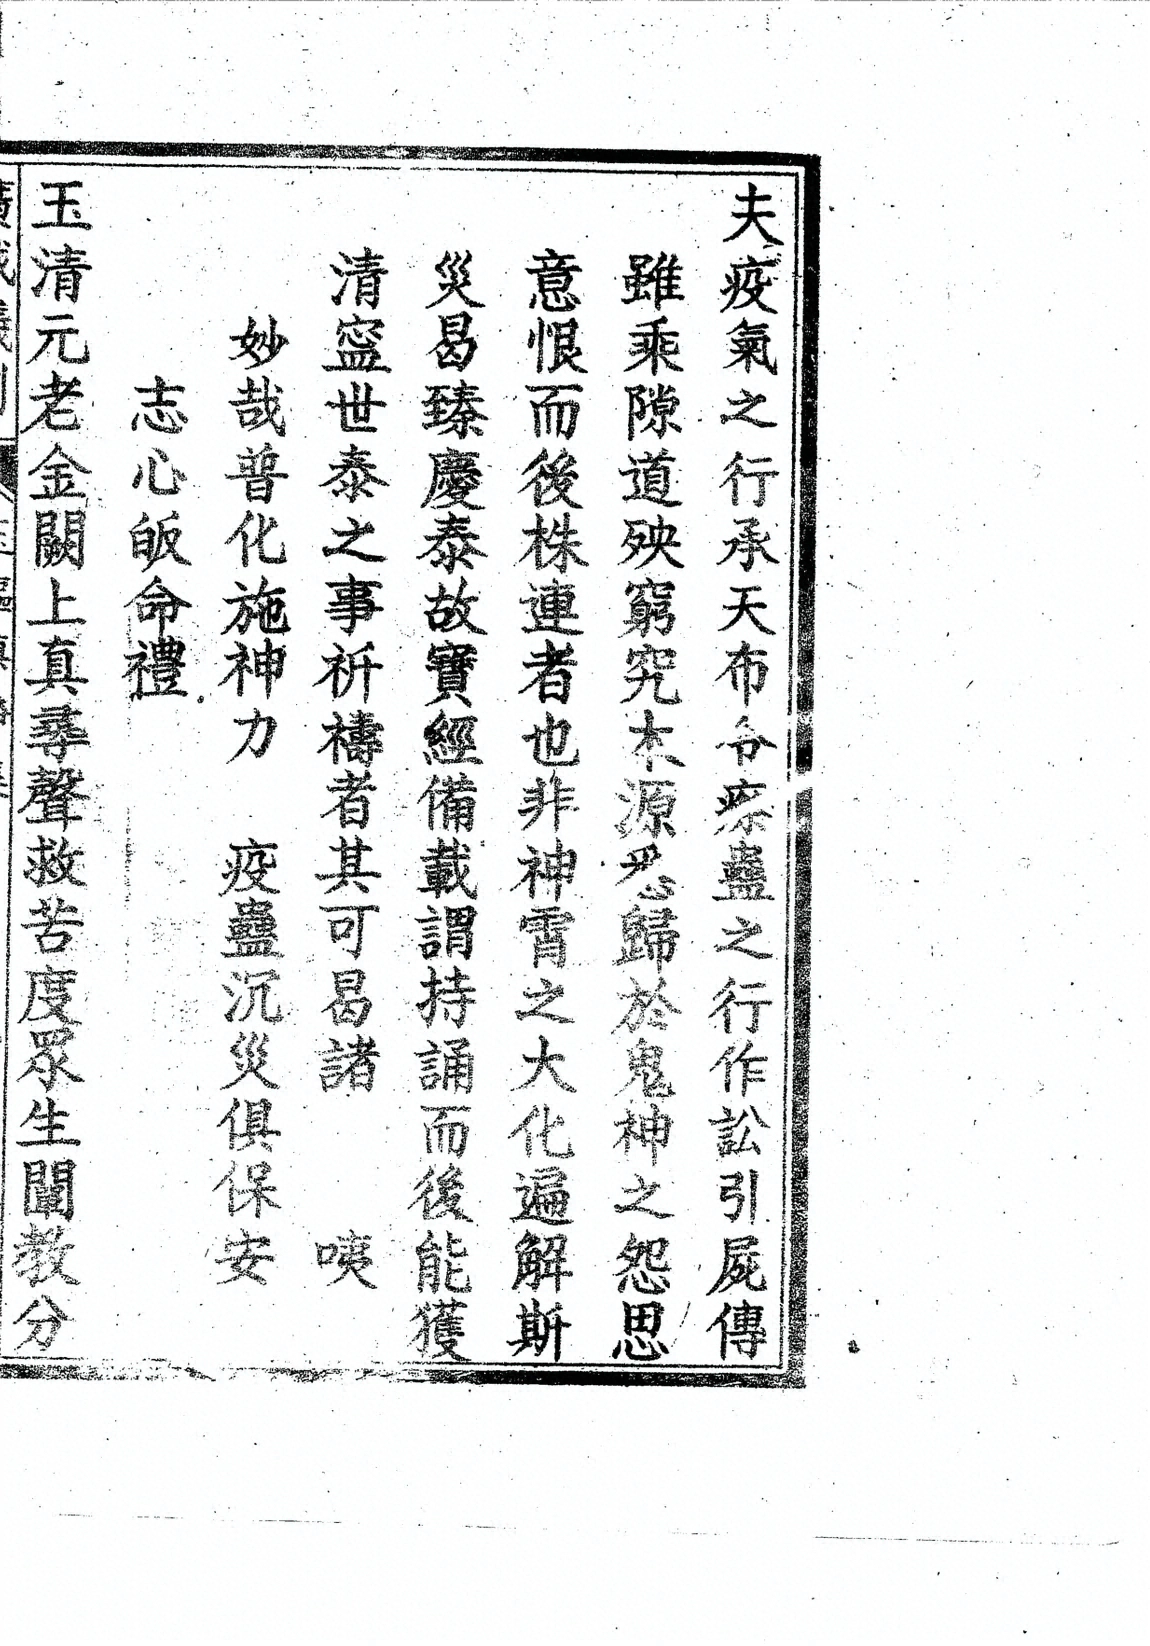 夫疫氣之行承天布令瘵蠱之行作訟引屍傳
雖乘隙道殃窮究本源悉歸於鬼神之怨思
意恨而後株連者也非神霄之大化遍解斯
災曷臻慶泰故寶經備載謂持誦而後能獲
清寍世泰之事祈禱者其可曷諸　咦
妙哉普化施神力　疫蠱沉災俱保安
志心皈命禮
玉清元老金闕上真尋聲救苦度眾生闡教分